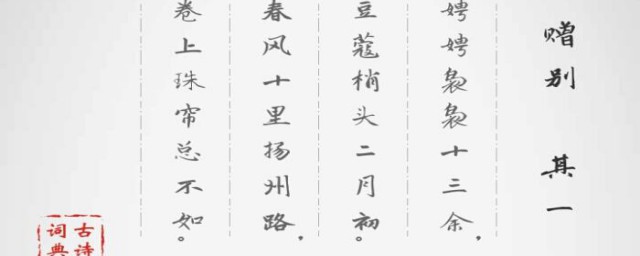 赠别 其一
娉娉袅袅十三余，
豆蔻梢头二月初。
春风十里扬州路，
卷上珠帘总不如。
古诗
词典